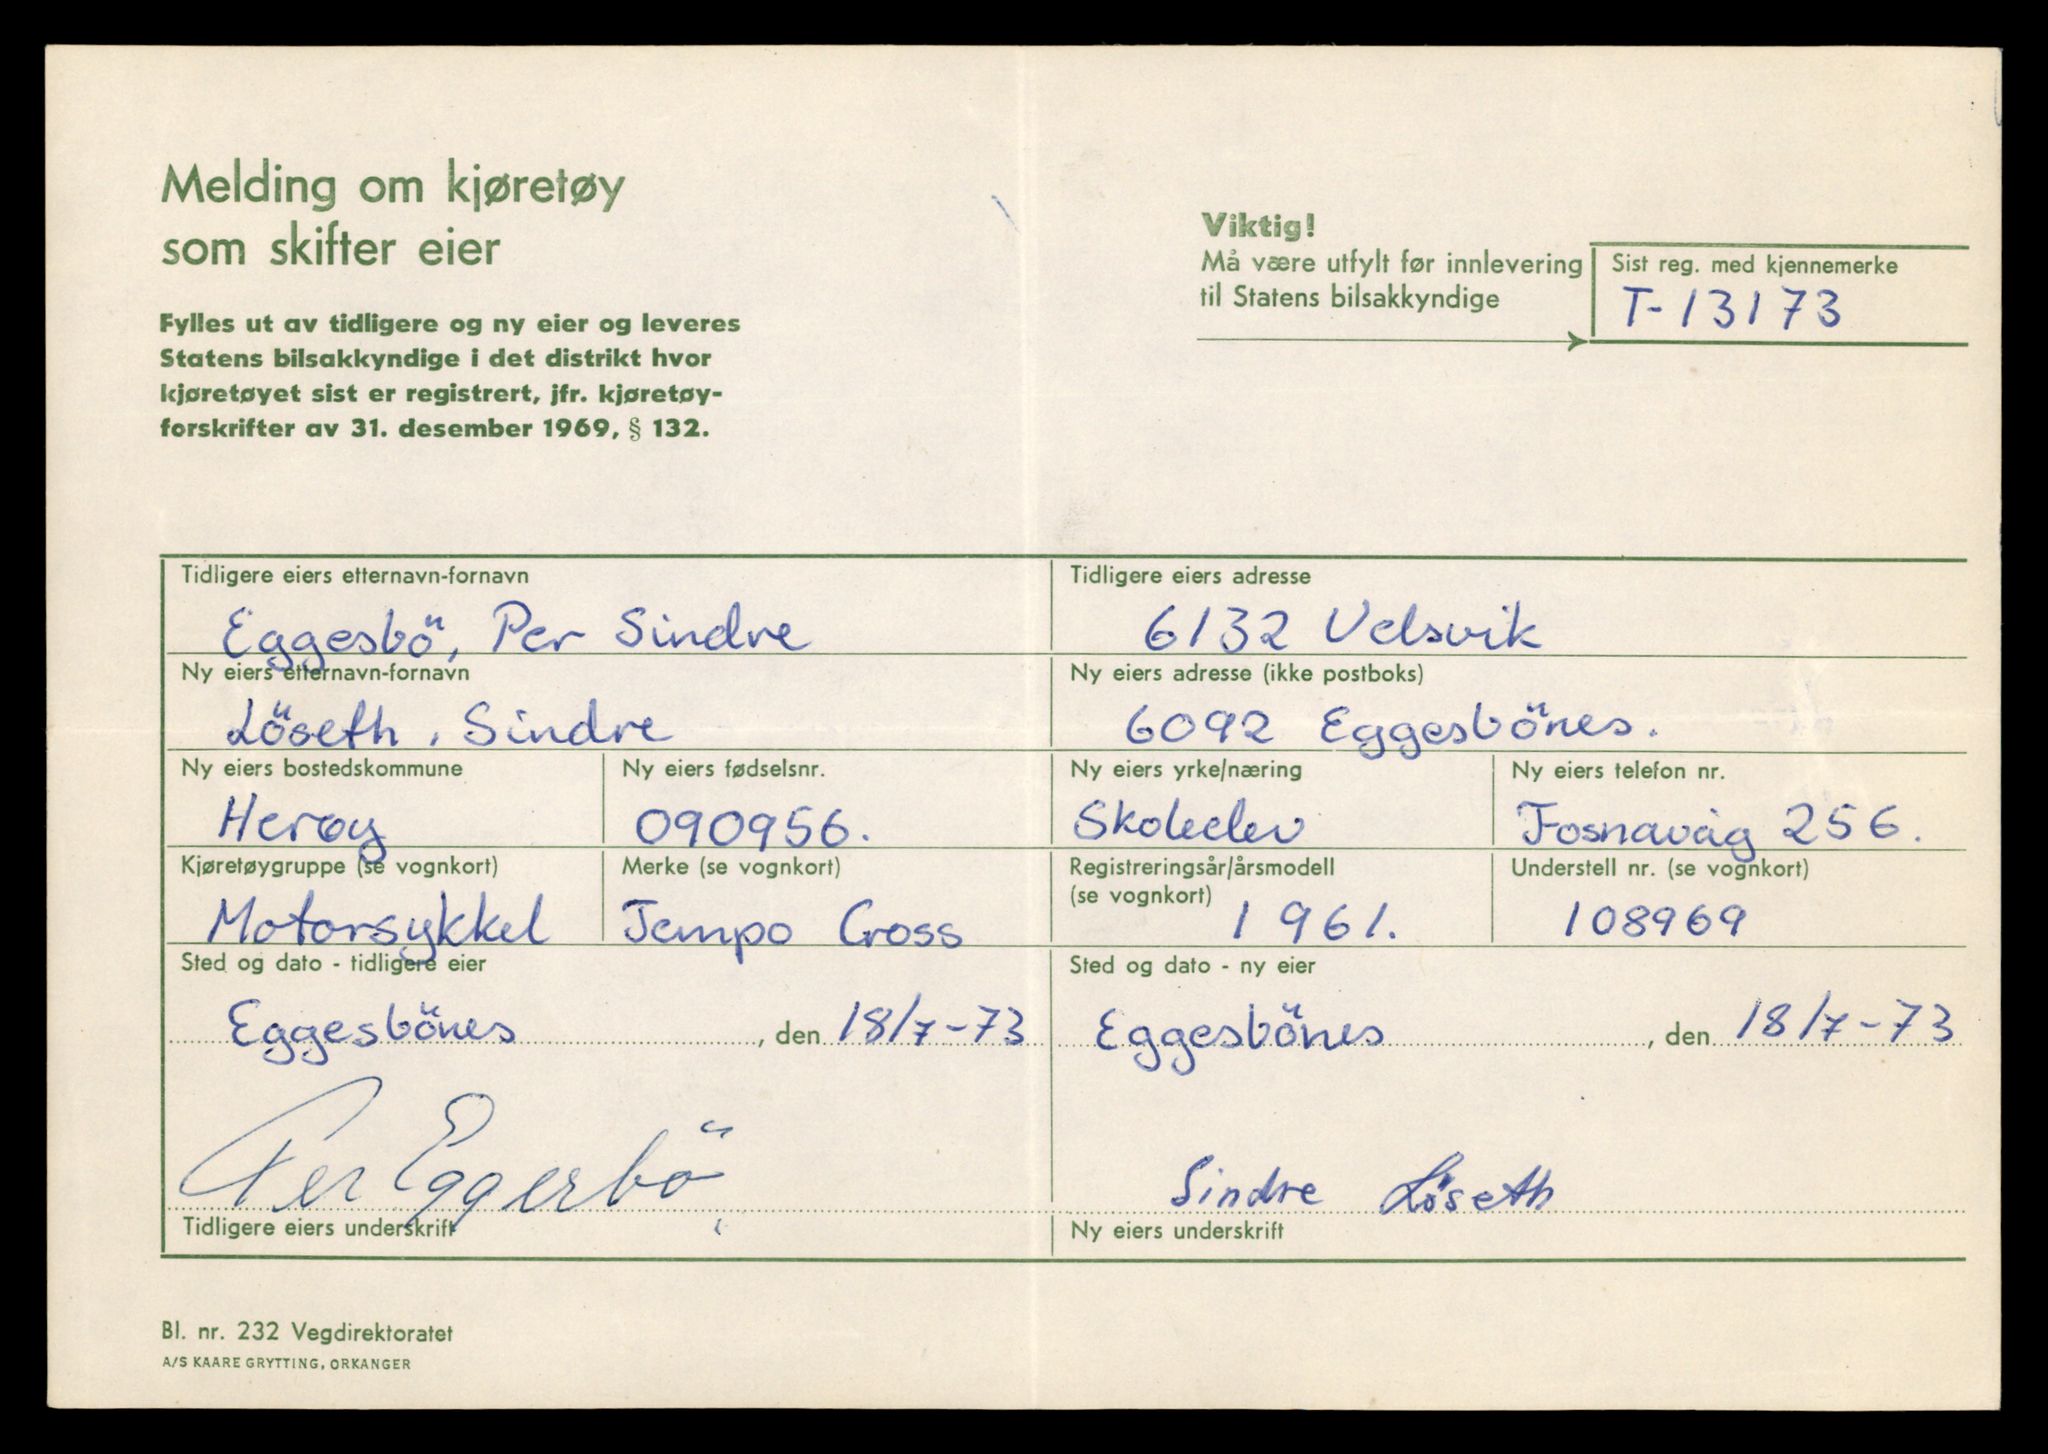 Melding om kjøretøy
som skifter eier
Fylles ut av tidligere og ny eier og leveres
Statens bilsakkyndige i det distrikt hvor
kjøretøyet sist er registrert, jfr. kjøretøy-
forskrifter av 31. desember 1969, § 132.
Viktig!
Må være utfylt før innlevering
til Statens bilsakkyndige
Sist reg. med kjennemerke
T-13173
Tidligere eiers etternavn-fornavn
Eggesbö, Per Sindre
Tidligere eiers adresse
6132 Velsvik
Ny eiers etternavn-fornavn
Löseth, Sindre
Ny eiers adresse (ikke postboks)
6092 Eggesbönes.
Ny eiers bostedskommune
Herøy
Ny eiers fødselsnr.
090956.
Ny eiers yrke/næring
Skoleelev
Ny eiers telefon nr.
Fosnavåg 256.
Kjøretøygruppe (se vognkort)
Motorsykkel
Merke (se vognkort)
Tempo Cross
Registreringsår/årsmodell
(se vognkort)
1961.
Understell nr. (se vognkort)
108969
Sted og dato - tidligere eier
Eggesbönes, den 18/7-73
Sted og dato - ny eier
Eggesbönes, den 18/7-73
Per Eggesbö
Tidligere eiers underskrift
Sindre Löseth
Ny eiers underskrift
Bl. nr. 232 Vegdirektoratet
A/S KAARE GRYTTING, ORKANGER